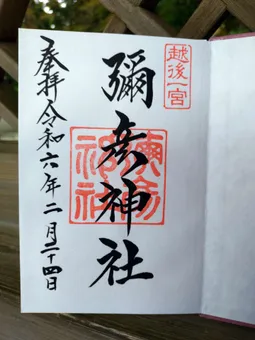 越後一宮
彌彦神社
彌彦神社
奉拝令和六年二月二十四日